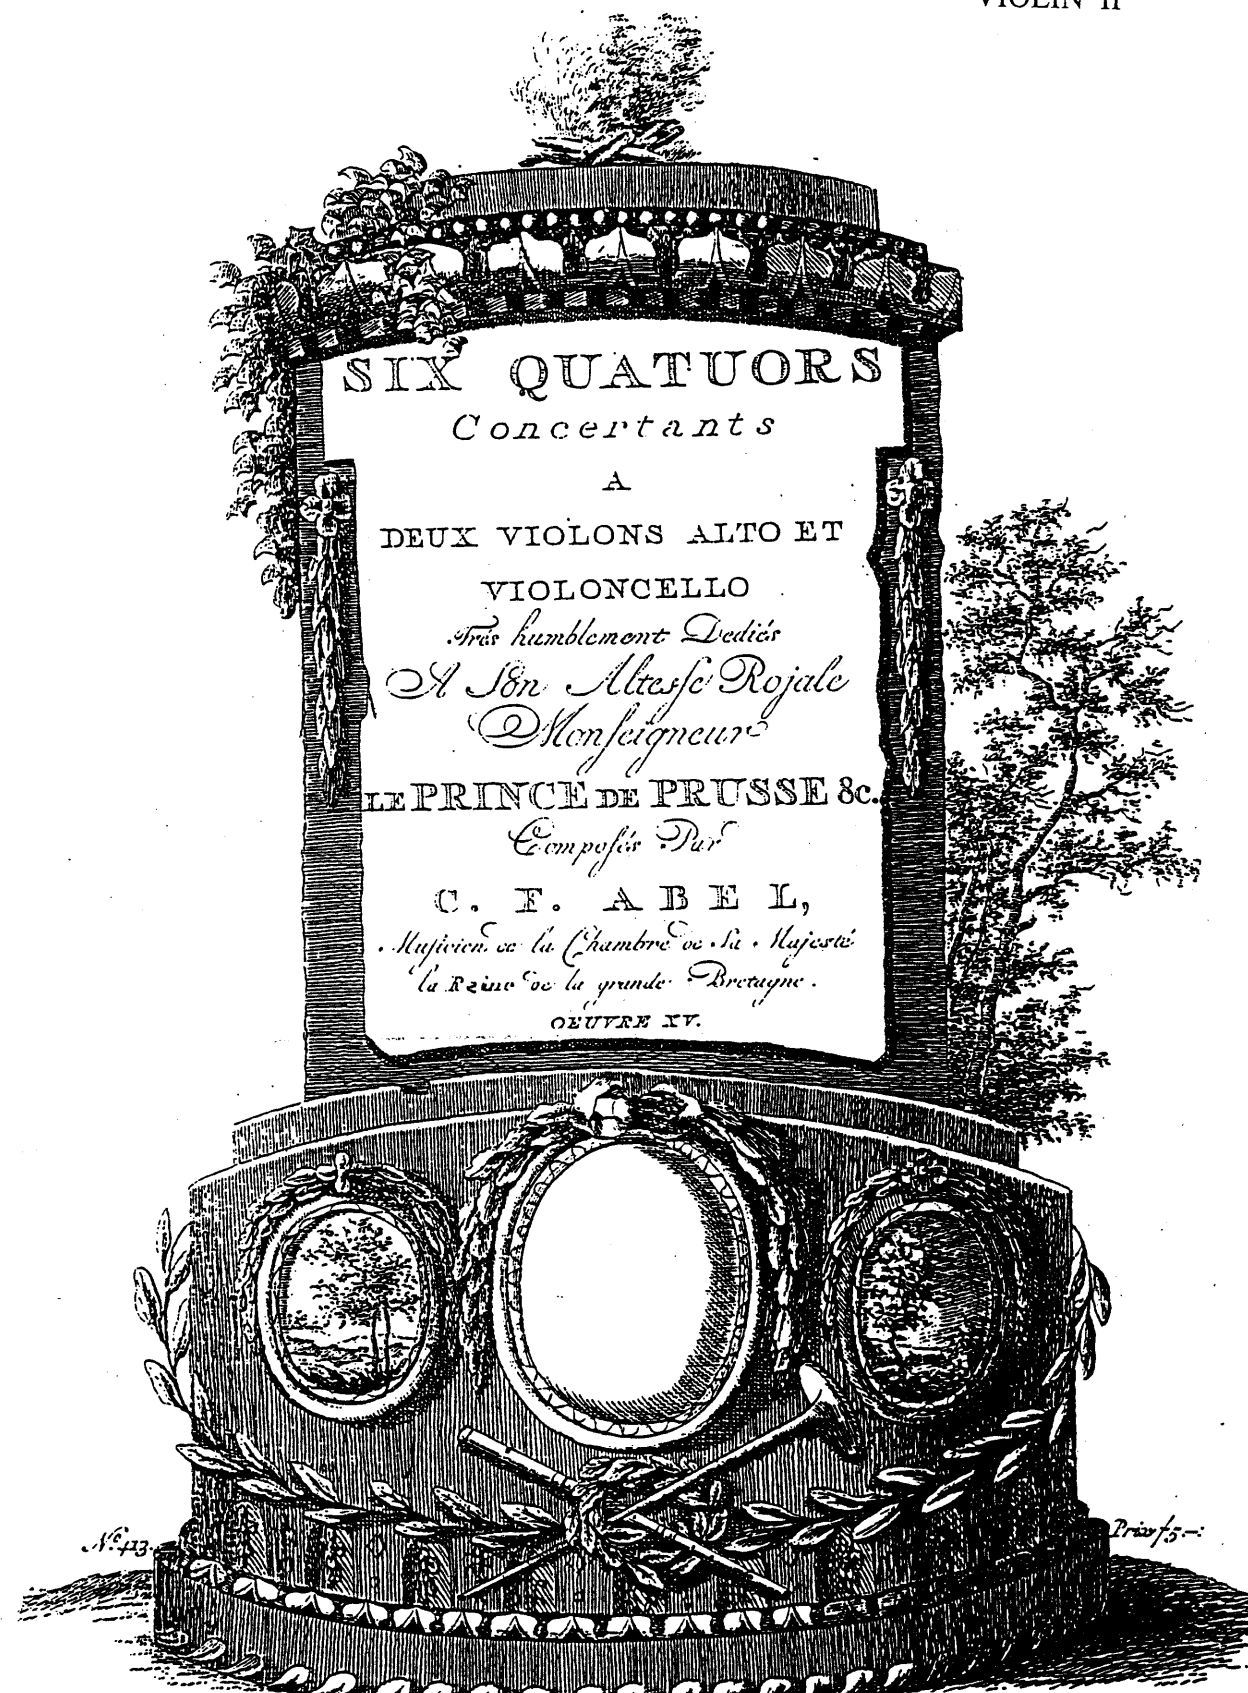 VIOLIN II
SIX QUATUORS
Concertants
A
DEUX VIOLONS ALTO ET
VIOLONCELLO
Trés humblement Dediés
A Son Altesse Rojale
Monseigneur
LE PRINCE DE PRUSSE &c.
Composés Par
C. F. ABEL,
Musicien de la Chambre de Sa Majesté
la Reine de la grande Bretagne.
OEUVRE XV.
No. 413.
Prix f5.-: